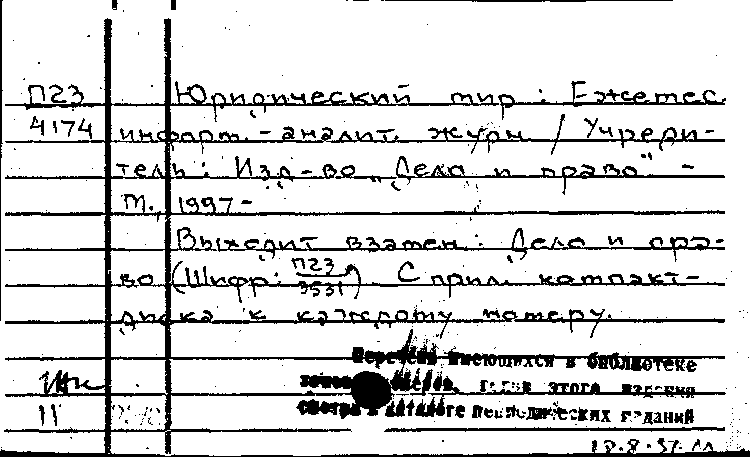 П23 Юридический мир : Ежемес.
4174 информ.-аналит. журн. / Учреди-
тель : Изд-во „Дело и право". -
М., 1997-
Выходит взамен : Дело и пра-
во (Шифр: П23/3531). С прил. компакт-
диска к каждому номеру.
Перечень имеющихся в библиотеке
этого издания
смотри в каталоге периодических изданий
11